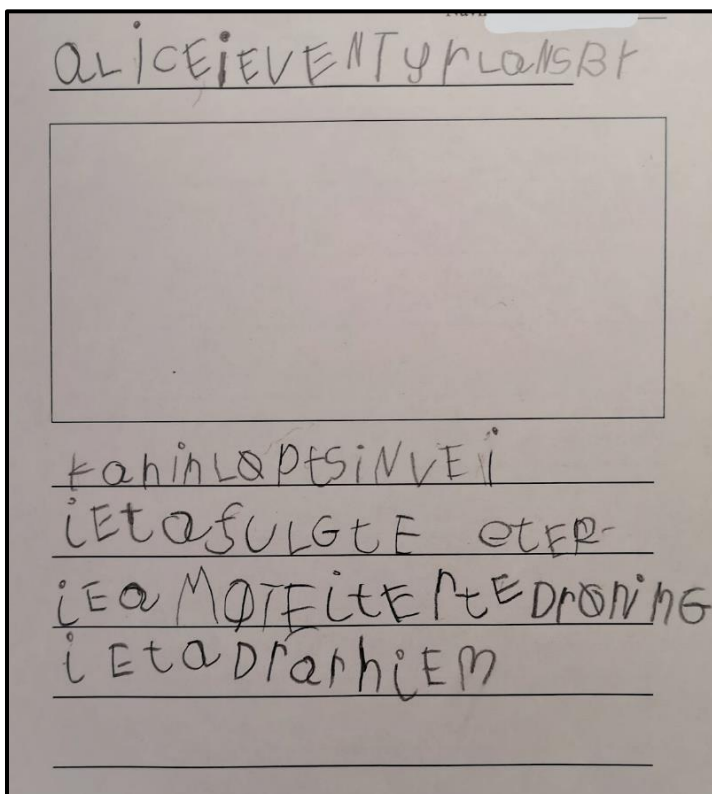 aLiCEiEVENTyrLaNSBr
kaninLØPtSiNVEi
jEtafULGtE etER
jEa MØTEitErtEDrØNinG
jEtaDrarhjEM